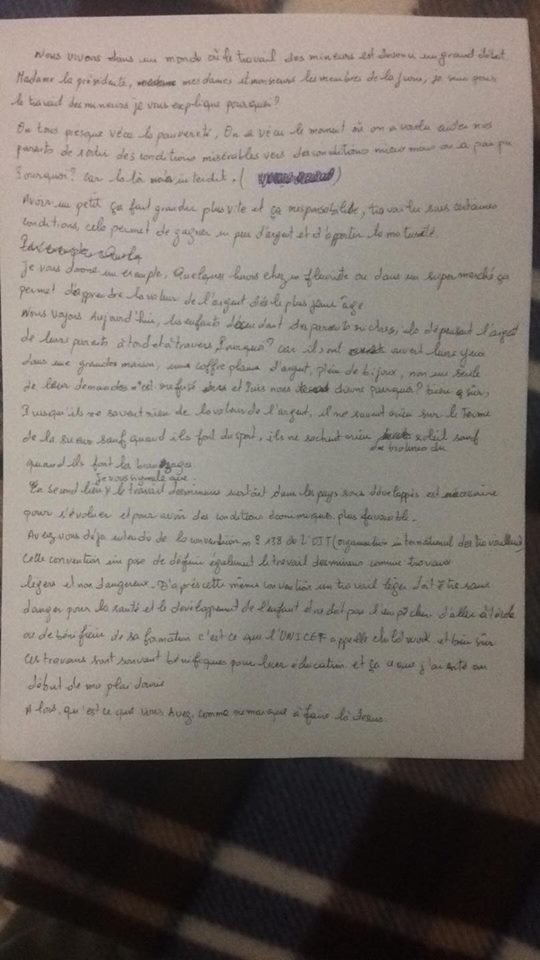 Nous vivons dans un monde où le travail des mineurs est devenu un grand débat
Madame la présidente, mesdames et monsieurs les membres de la jurie, je suis pour
le travail des mineurs je vous explique pourquoi?
On tous presque vécu la pauvereté, On a vécu le moment où on a voulu aider nos
parents de sortir des conditions misérables vers des conditions mieux mais on a pas pu
Pourquoi? car la loi interdit. (
Avoir un petit ça fait grandir plus vite et ça responsabilise, travailler sous certaines
conditions, cela permet de gagner un peu d'argent et d'apporter la maturité.
Je vous donne un exemple, Quelques heures chez un fleuriste ou dans un supermarché ça
permet d'apprendre la valeur de l'argent dès le plus jeune âge
Nous voyons Aujourd'hui, les enfants des parents riches, ils dépensent l'argent
de leurs parents à tord et à travers, Pourquoi? car ils ont ouvert leurs yeux
dans une grandes maison, une coffre pleine d'argent, plein de bijoux, non un seule
de leur demandes n'est refusé et Puis nous disons pourquoi? bien sûr,
Puisqu'ils ne savent rien de la valeur de l'argent, il ne savent rien sur le Terme
de la sueur sauf quand ils font du sport, ils ne sachent rien soleil sauf
quand ils font la bronzage.
Je vous signale que
En second lieu le travail des mineurs surtout dans les pays sous développés est nécessaire
pour s'évoluer et pour avoir des conditions économiques plus favorable.
Avez vous déja entendu de la convention n° 138 de l'OIT (organisation international des travailleurs)
Cette convention impose de définir également le travail des mineurs comme travaux
légers et non dangereux. D'après cette même convention un travail léger doit être sans
danger pour la santé et le développement de l'enfant et ne doit pas l'empêcher d'aller à l'école
ou de bénéficier de sa formation c'est ce que l'UNICEF appelle child work et bien sûr
Ces travaux sont souvent bénifiques pour leur éducation et ça ce que j'ai cité au
début de ma plaidoirie
Alors, qu'est ce que vous Avez comme remarque à faire là dessus.